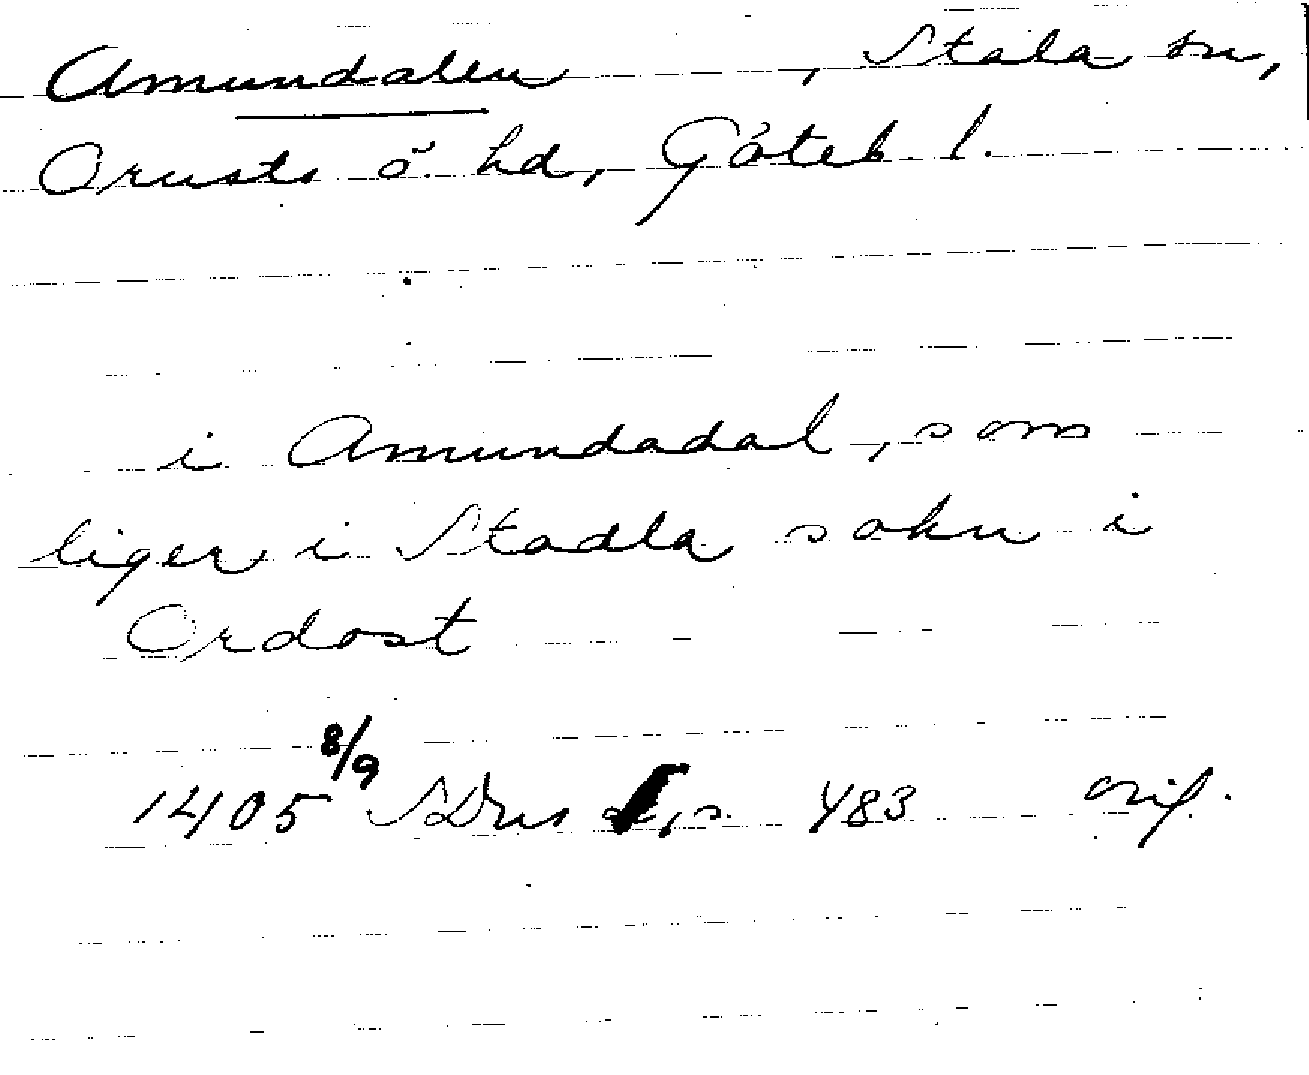 Amundalen, Stala sn,
Orusts ö. hd, Göteb l.
i Amundadal, som
liger i Stadla sokn i
Ordost
1405 8/9 SDns 1, s. 483 orig.